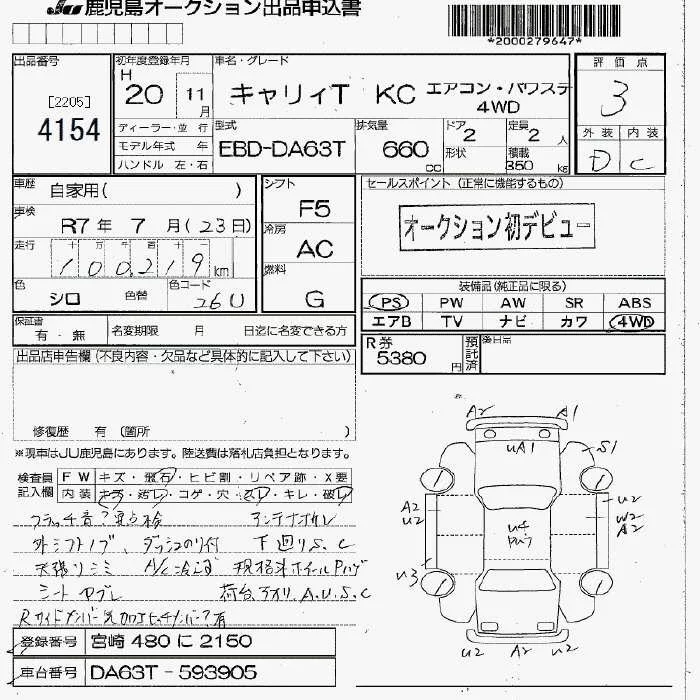 JU 鹿児島オークション出品申込書
*2000279647*
出品番号
[2205]
4154
初年度登録年月
H 20 11月
車名・グレード
キャリィT KC エアコン・パワステ
4WD
評価点
3
外装 内装
D C
ディーラー・並行
モデル年式 年
ハンドル 左・右
型式
EBD-DA63T
排気量
660 cc
ドア 2
形状
定員 2 人
積載 350 kg
車歴 自家用( )
車検 R7年 7月(23日)
走行 十 万 千 百 十 一
100219 km
色 シロ 色替
色コード 26U
シフト F5
冷房 AC
燃料 G
セールスポイント(正常に機能するもの)
オークション初デビュー
装備品(純正品に限る)
PS PW AW SR ABS
エアB TV ナビ カワ 4WD
保証書 有・無
名変期限 月 日迄に名変できる方
R券 5380円
預託済
後日品
出品店申告欄(不良内容・欠品など具体的に記入して下さい)
修復歴 有 (箇所 )
※現車はJU鹿児島にあります。陸送費は落札店負担となります。
検査員記入欄
FW キズ・飛石・ヒビ割・リペア跡・X要
内装 キズ・汚レ・コゲ・穴・スレ・キレ・破レ
クラッチ音?要点検 アンテナオレ
外シフトノブ、ダッシュのり付 下廻りS.C
天張りシミ A/C冷?
シートヤブレ 荷台、アオリ、A.U.S.C
登録番号 宮崎 480 に 2150
車台番号 DA63T-593905
A2 A1
UA1
S1
A2
U2
U2
W2
A2
U4
U3
U2 A2 U2